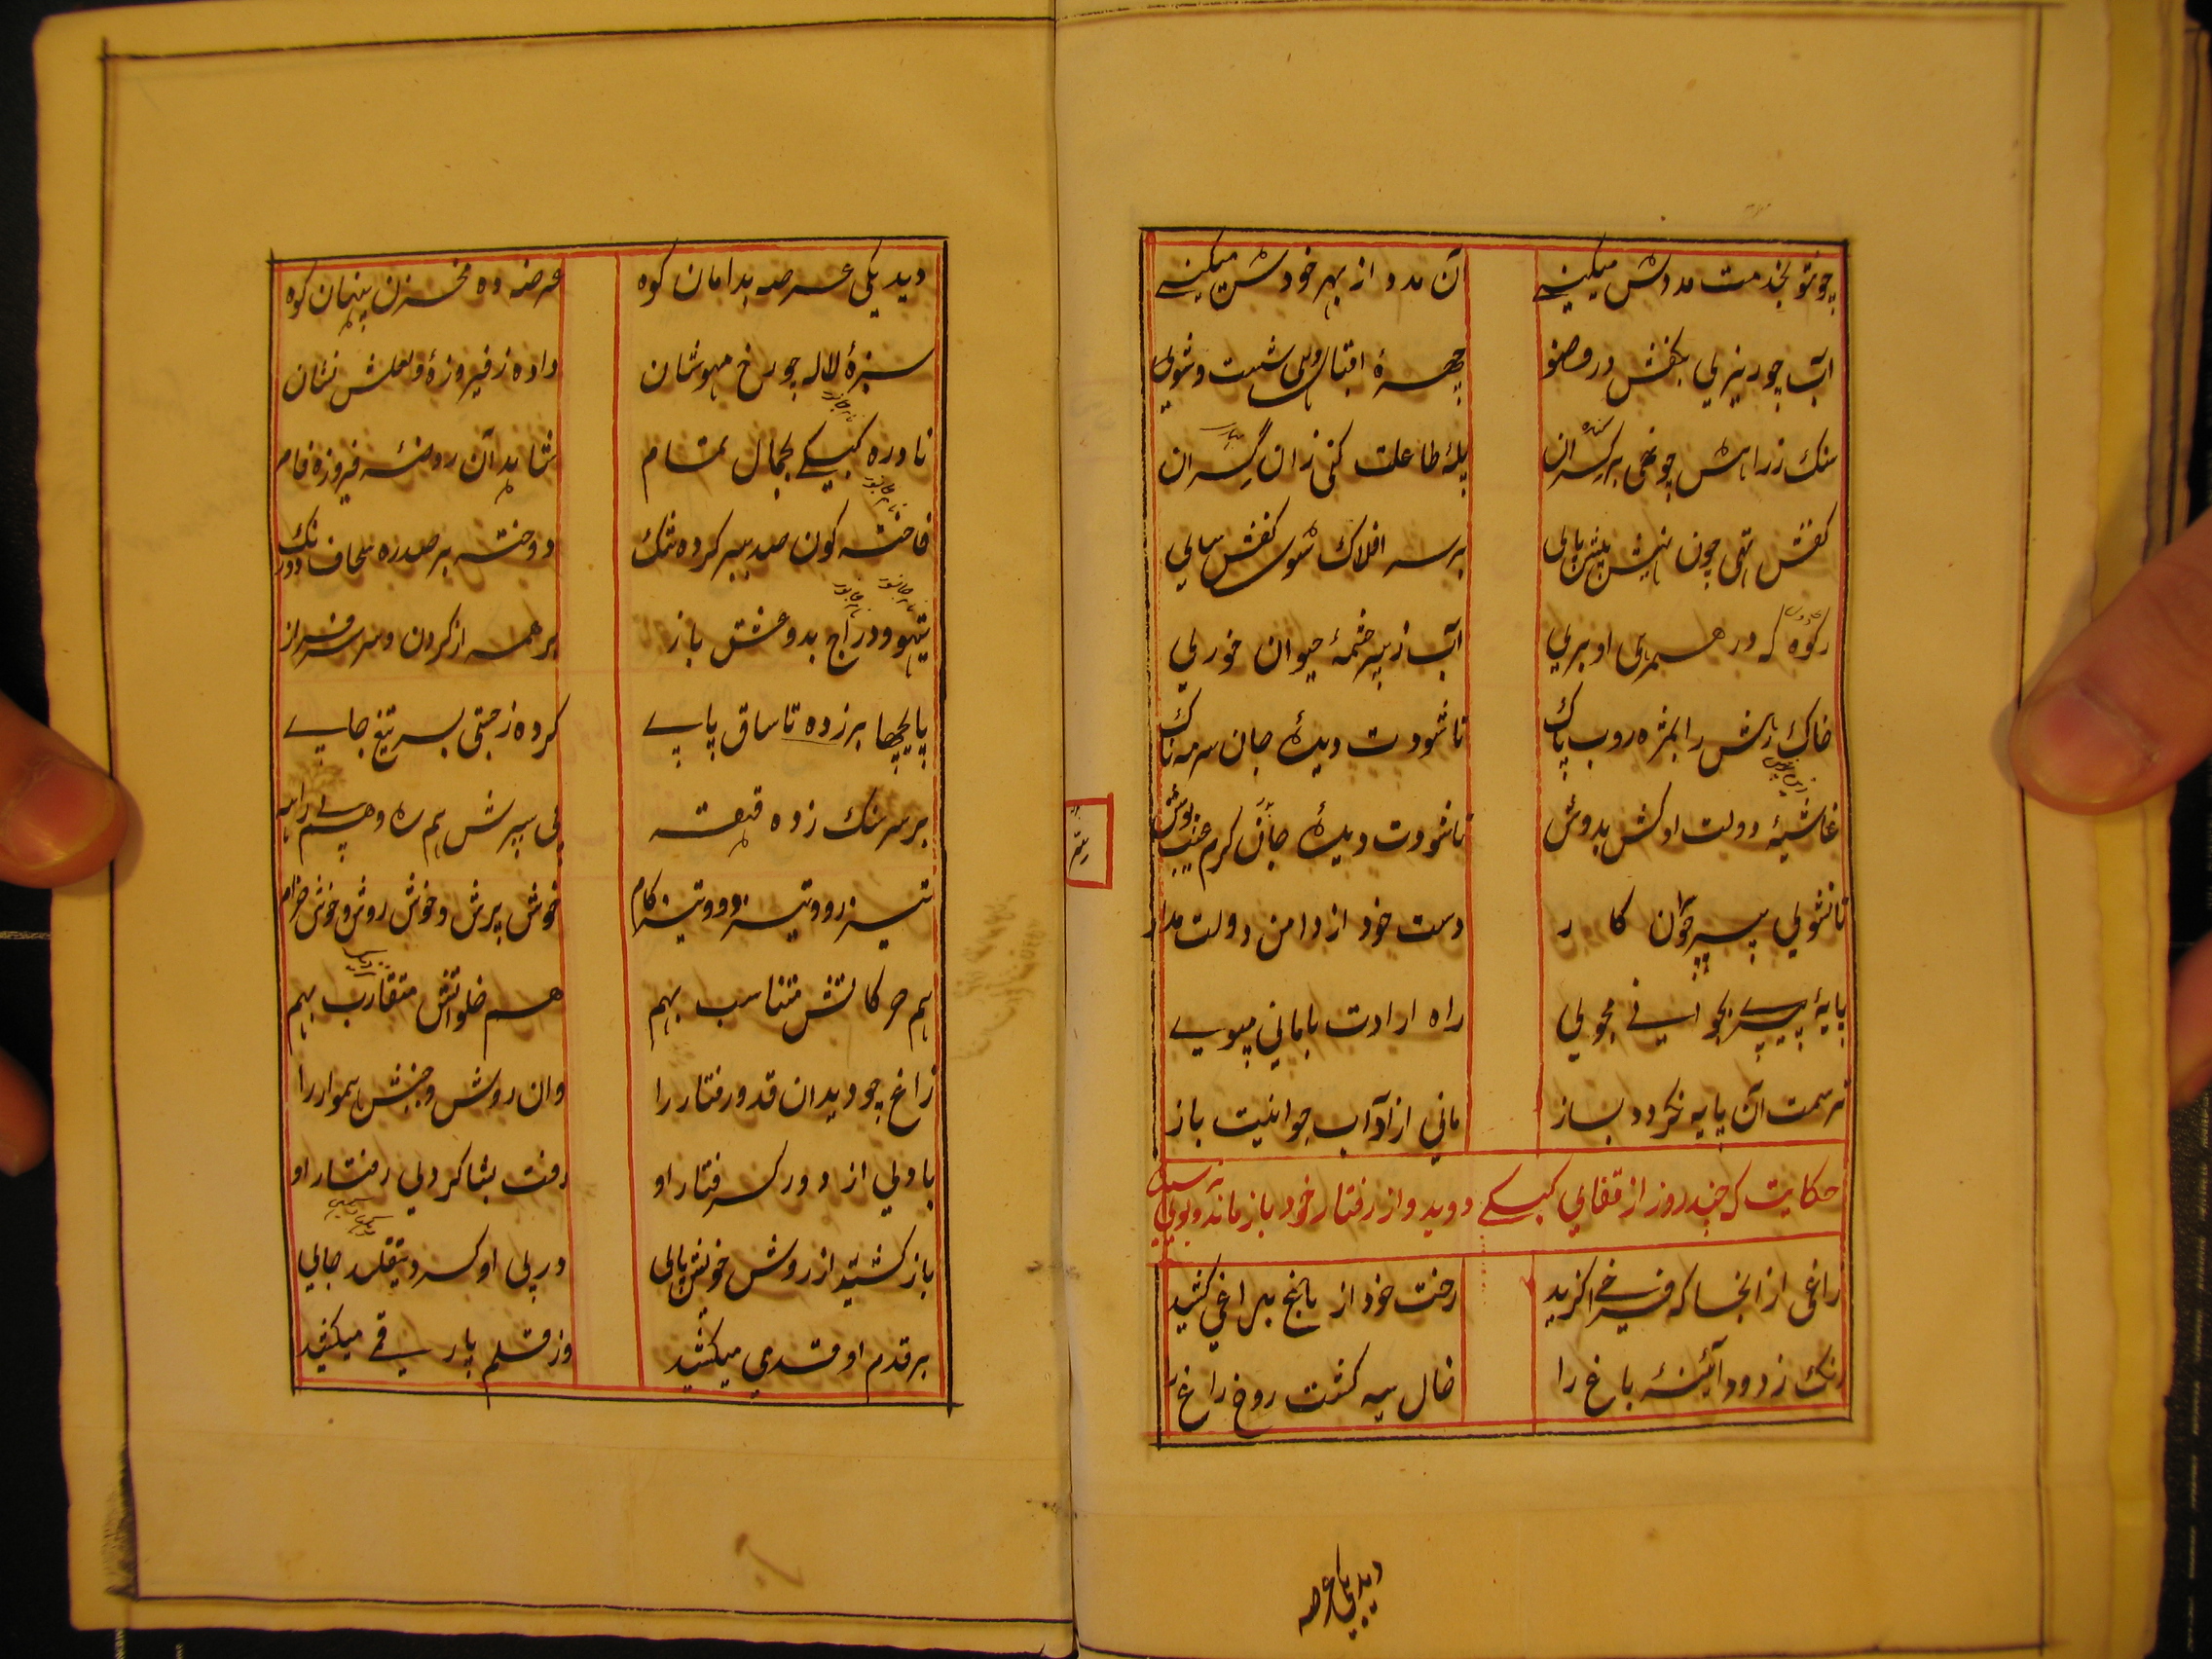 چو تو بخدمت مددش میکنی آن مدد از بهر خودش میکنی
آب چو ریزی بکفش در وضو چهرهٔ اقبال ویی شست و شوی
سنک ز راهش چو نهی بر کران پلهٔ طاعت کنی زان گران
کفش نهی چون نهیش پیش پای بر سر افلاک شوی کفش سای
رکوه که در همرهی او بری آب ز سرچشمهٔ حیوان خوری
خاک رهش را بمژه روب پاک تا شودت دیدهٔ جان سرمه ناک
غاشیهٔ دولت او کش بدوش تا شودت دیدهٔ جان کرم عیب پوش
تا نشوی پیر جوان کار دست خود از دامن دولت مدار
پایهٔ پیری بجوانی مجوی راه ارادت بامانی مپوی
ترسمت آن پایه نکردد بساز مانی از آداب جوانیت باز
حکایت که چند روز از قفای کبکی دوید و از رفتار خود باز ماند و بوی نرسید
زاغی از انجا که فراغی کزید رخت خود از باغ براغی کشید
زنک زدود آئینهٔ باغ را خال سیه کشت رخ راغ را
دید یکی عرصه بدامان کوه عرضه ده مخزن پنهان کوه
سبزهٔ لاله چو رخ مهوشان داده ز فیروزهٔ و لعلش نشان
نادره کبکی بجمال تمام شاهد آن روضهٔ فیروزه فام
فاخته کون صدر ببر کرده تنک دوخته بر صدره سجاف دو رنک
تیهو و دراج بدو عشق باز بر همه از کردن و سر سرفراز
پایچها بر زده تا ساق پای کرده ز چستی بسر تیغ جای
بر سر سنک زده قهقهه پی سپرش هم ره و هم بی راهه
تیز رو و تیز دو و تیز کام خوش پرش و خوش روش و خوش خرام
هم حرکاتش متناسب بهم هم خطواتش متقارب بهم
زاغ چو دید ان قد و رفتار را وان روش و جنبش هموار را
با دلی از دور کرفتار او رفت بشاکردی رفتار او
باز کشید از روش خویش پای در پی او کرد بتقلید جای
بر قدم او قدمی میکشید وز قلم پا رقمی میکشید
دید یکی عرصه